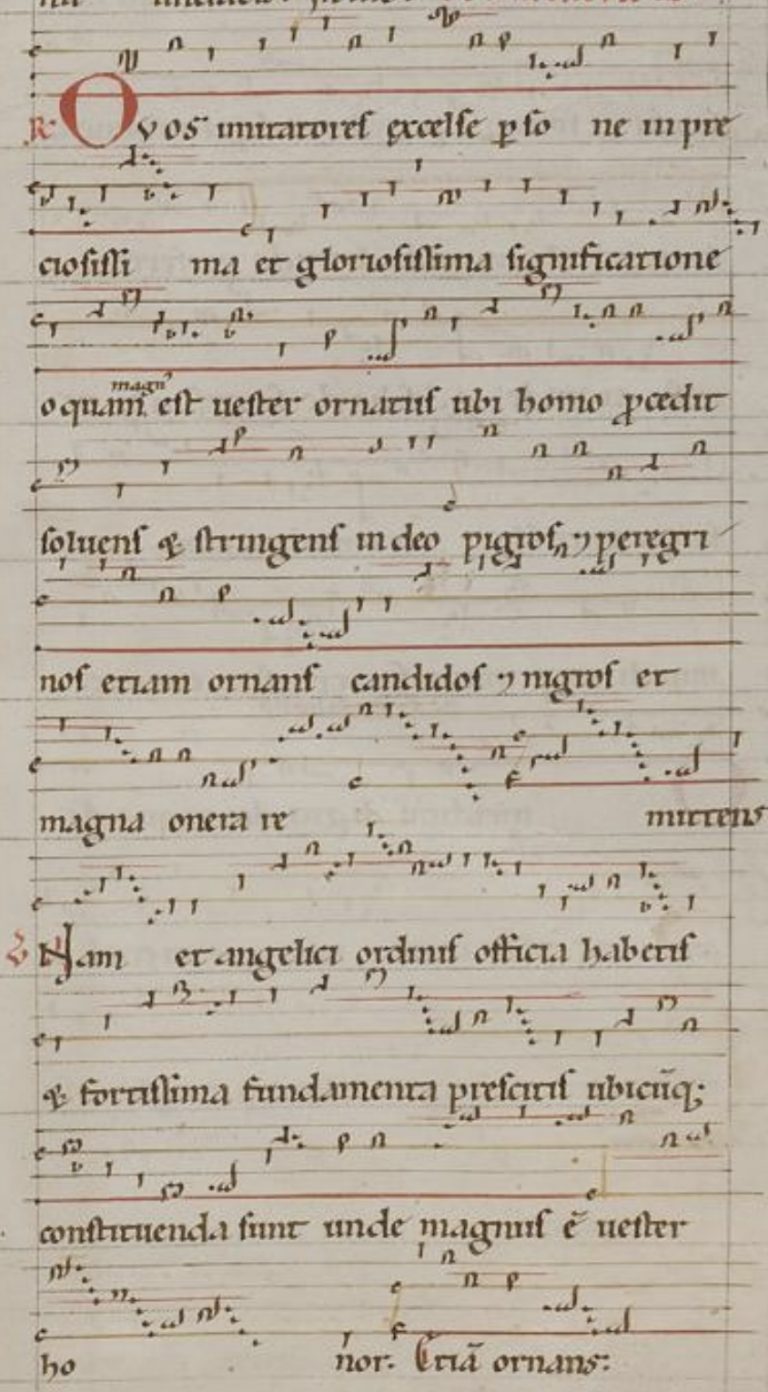 R O vos imitatores excelse p so ne in pre
ciosissi ma et gloriosissima significatione
o quam magn' est uester ornatus ubi homo pcedit
soluens & stringens in deo pigros ⁊ peregri
nos etiam ornans candidos ⁊ nigros et
magna onera re mittens
V Nam et angelici ordinis officia habetis
& fortissima fundamenta prescitis ubicūq;
constituenda sunt unde magnus ē uester
ho nor. Etiā ornans: